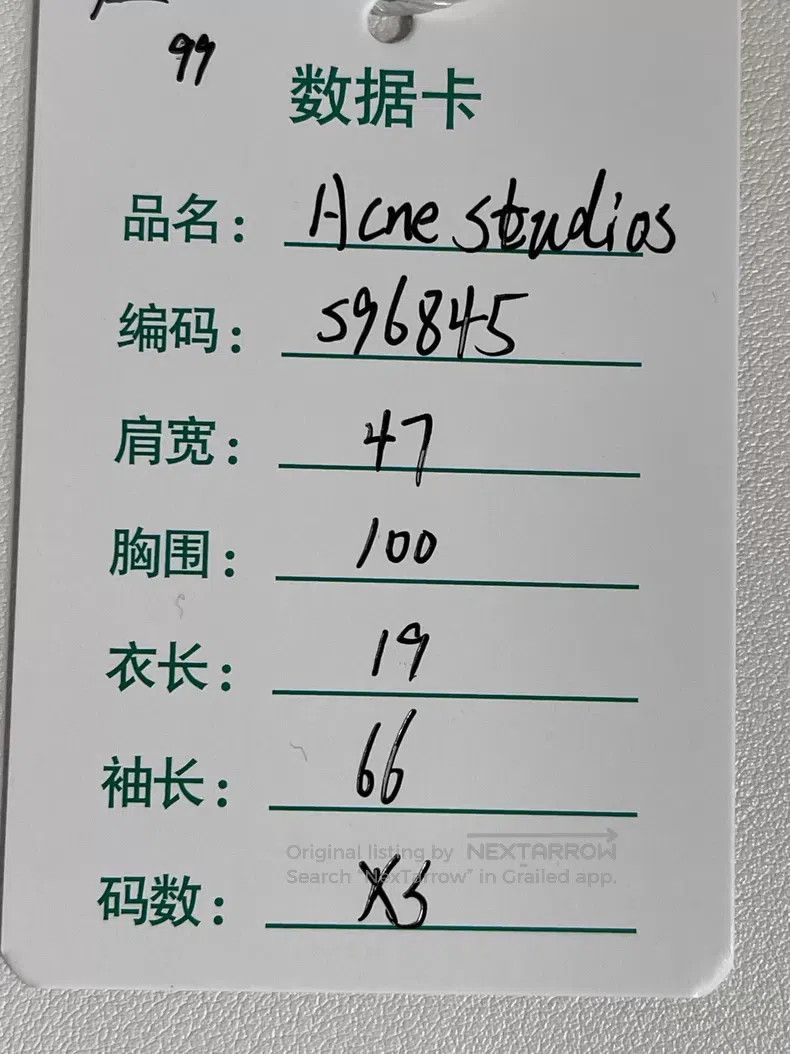 99
数据卡
品名: Acne studios
编码: S96845
肩宽: 47
胸围: 100
衣长: 19
袖长: 66
Original listing by NEXTARROW
Search "NexTarrow" in Grailed app.
码数: XS